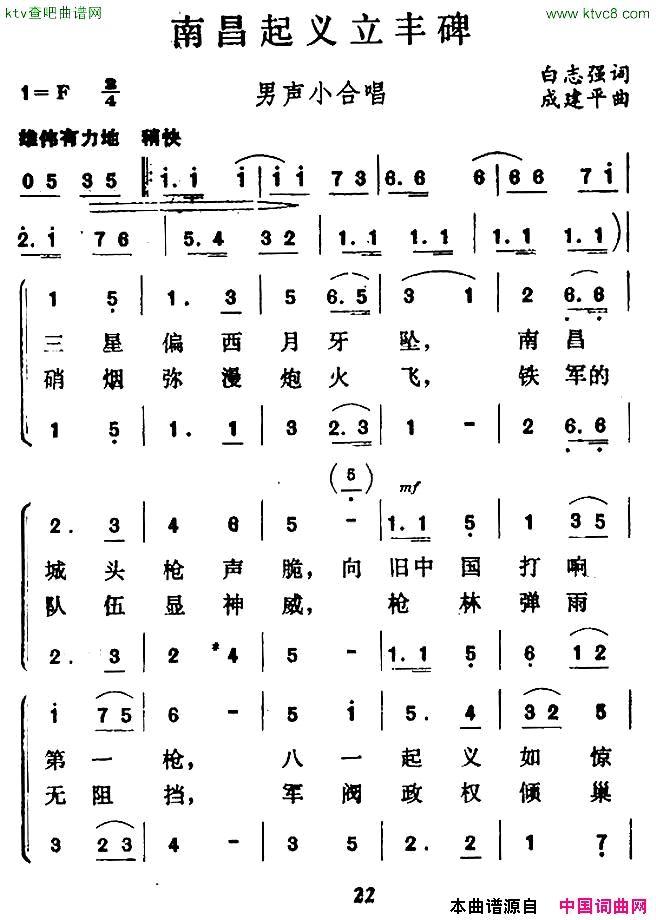 ktv查吧曲谱网
www.ktvc8.com
南昌起义立丰碑
1=F 2/4
男声小合唱
白志强词
成建平曲
雄伟有力地 稍快
0 5 3 5 1. 1 1 1 1 7 3 6. 6 6 6 6 7 1
2. 1 7 6 5. 4 3 2 1. 1 1. 1 1. 1 1. 1
1 5 1. 3 5 6. 5 3 1 2 6. 6
三星偏西月牙坠，南昌
硝烟弥漫炮火飞，铁军的
1 5 1. 1 3 2. 3 1 - 2 6. 6
(5) mf
2. 3 4 6 5 - 1. 1 5 1 3 5
城头枪声脆，向旧中国打响
队伍显神威，枪林弹雨
2. 3 2 #4 5 - 1. 1 5 6 1 2
1 7 5 6 - 5 1 5. 4 3 2 5
第一枪，八一起义如惊
无阻挡，军阀政权倾巢
3 2 3 4 - 3 5 2. 2 1 7
22
本曲谱源自 中国词曲网